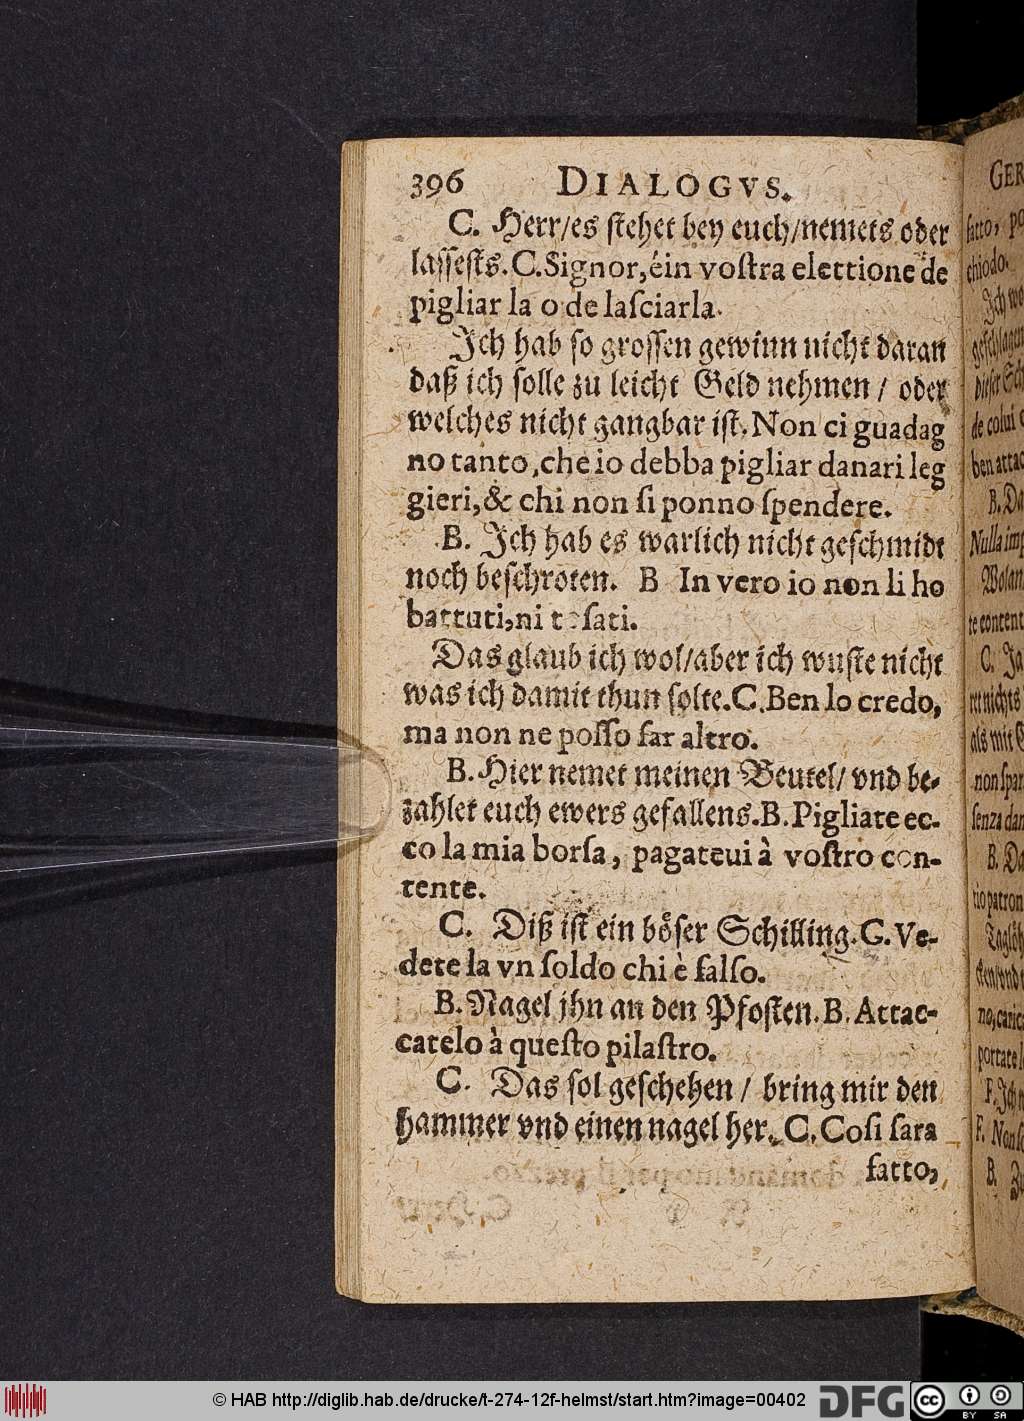 396 DIALOGVS.
C. Herr/es stehet bey euch/nemets oder
lassests. C. Signor, éin voſtra elettione de
pigliar la o de laſciarla.
Ich hab so grossen gewinn nicht daran
daß ich solle zu leicht Geld nehmen / oder
welches nicht gangbar ist. Non ci guadag
no tanto, che io debba pigliar danari leg
gieri, & chi non ſi ponno ſpendere.
B. Ich hab es warlich nicht geschmidt
noch beschroten. B In vero io non li ho
battuti, ni toſati.
Das glaub ich wol/aber ich wuste nicht
was ich damit thun solte. C. Ben lo credo,
ma non ne poſſo far altro.
B. Hier nemet meinen Beutel/ vnd be-
zahlet euch ewers gefallens. B. Pigliate ec-
co la mia borſa, pagateui à voſtro con-
tente.
C. Diß ist ein böser Schilling. C. Ve-
dete la vn ſoldo chi è falſo.
B. Nagel jhn an den Pfosten. B. Attac-
catelo à queſto pilaſtro.
C. Das sol geschehen / bring mir den
hammer vnd einen nagel her. C. Coſi ſara
fatto,
GER
fatto, po
chiodo.
Ich wo
geschlagen
dieser Sch
de colui c
ben attac
B. Da
Nulla imp
Wolan
te content
C. Ja
ret nichts
als mit G
non ſpar
ſenza dan
B. Da
tio patron
Taglöh
cken/vnd
no, carica
portate l
F. Ich
F. Non ſo
B.
© HAB http://diglib.hab.de/drucke/t-274-12f-helmst/start.htm?image=00402
DFG
cc BY SA